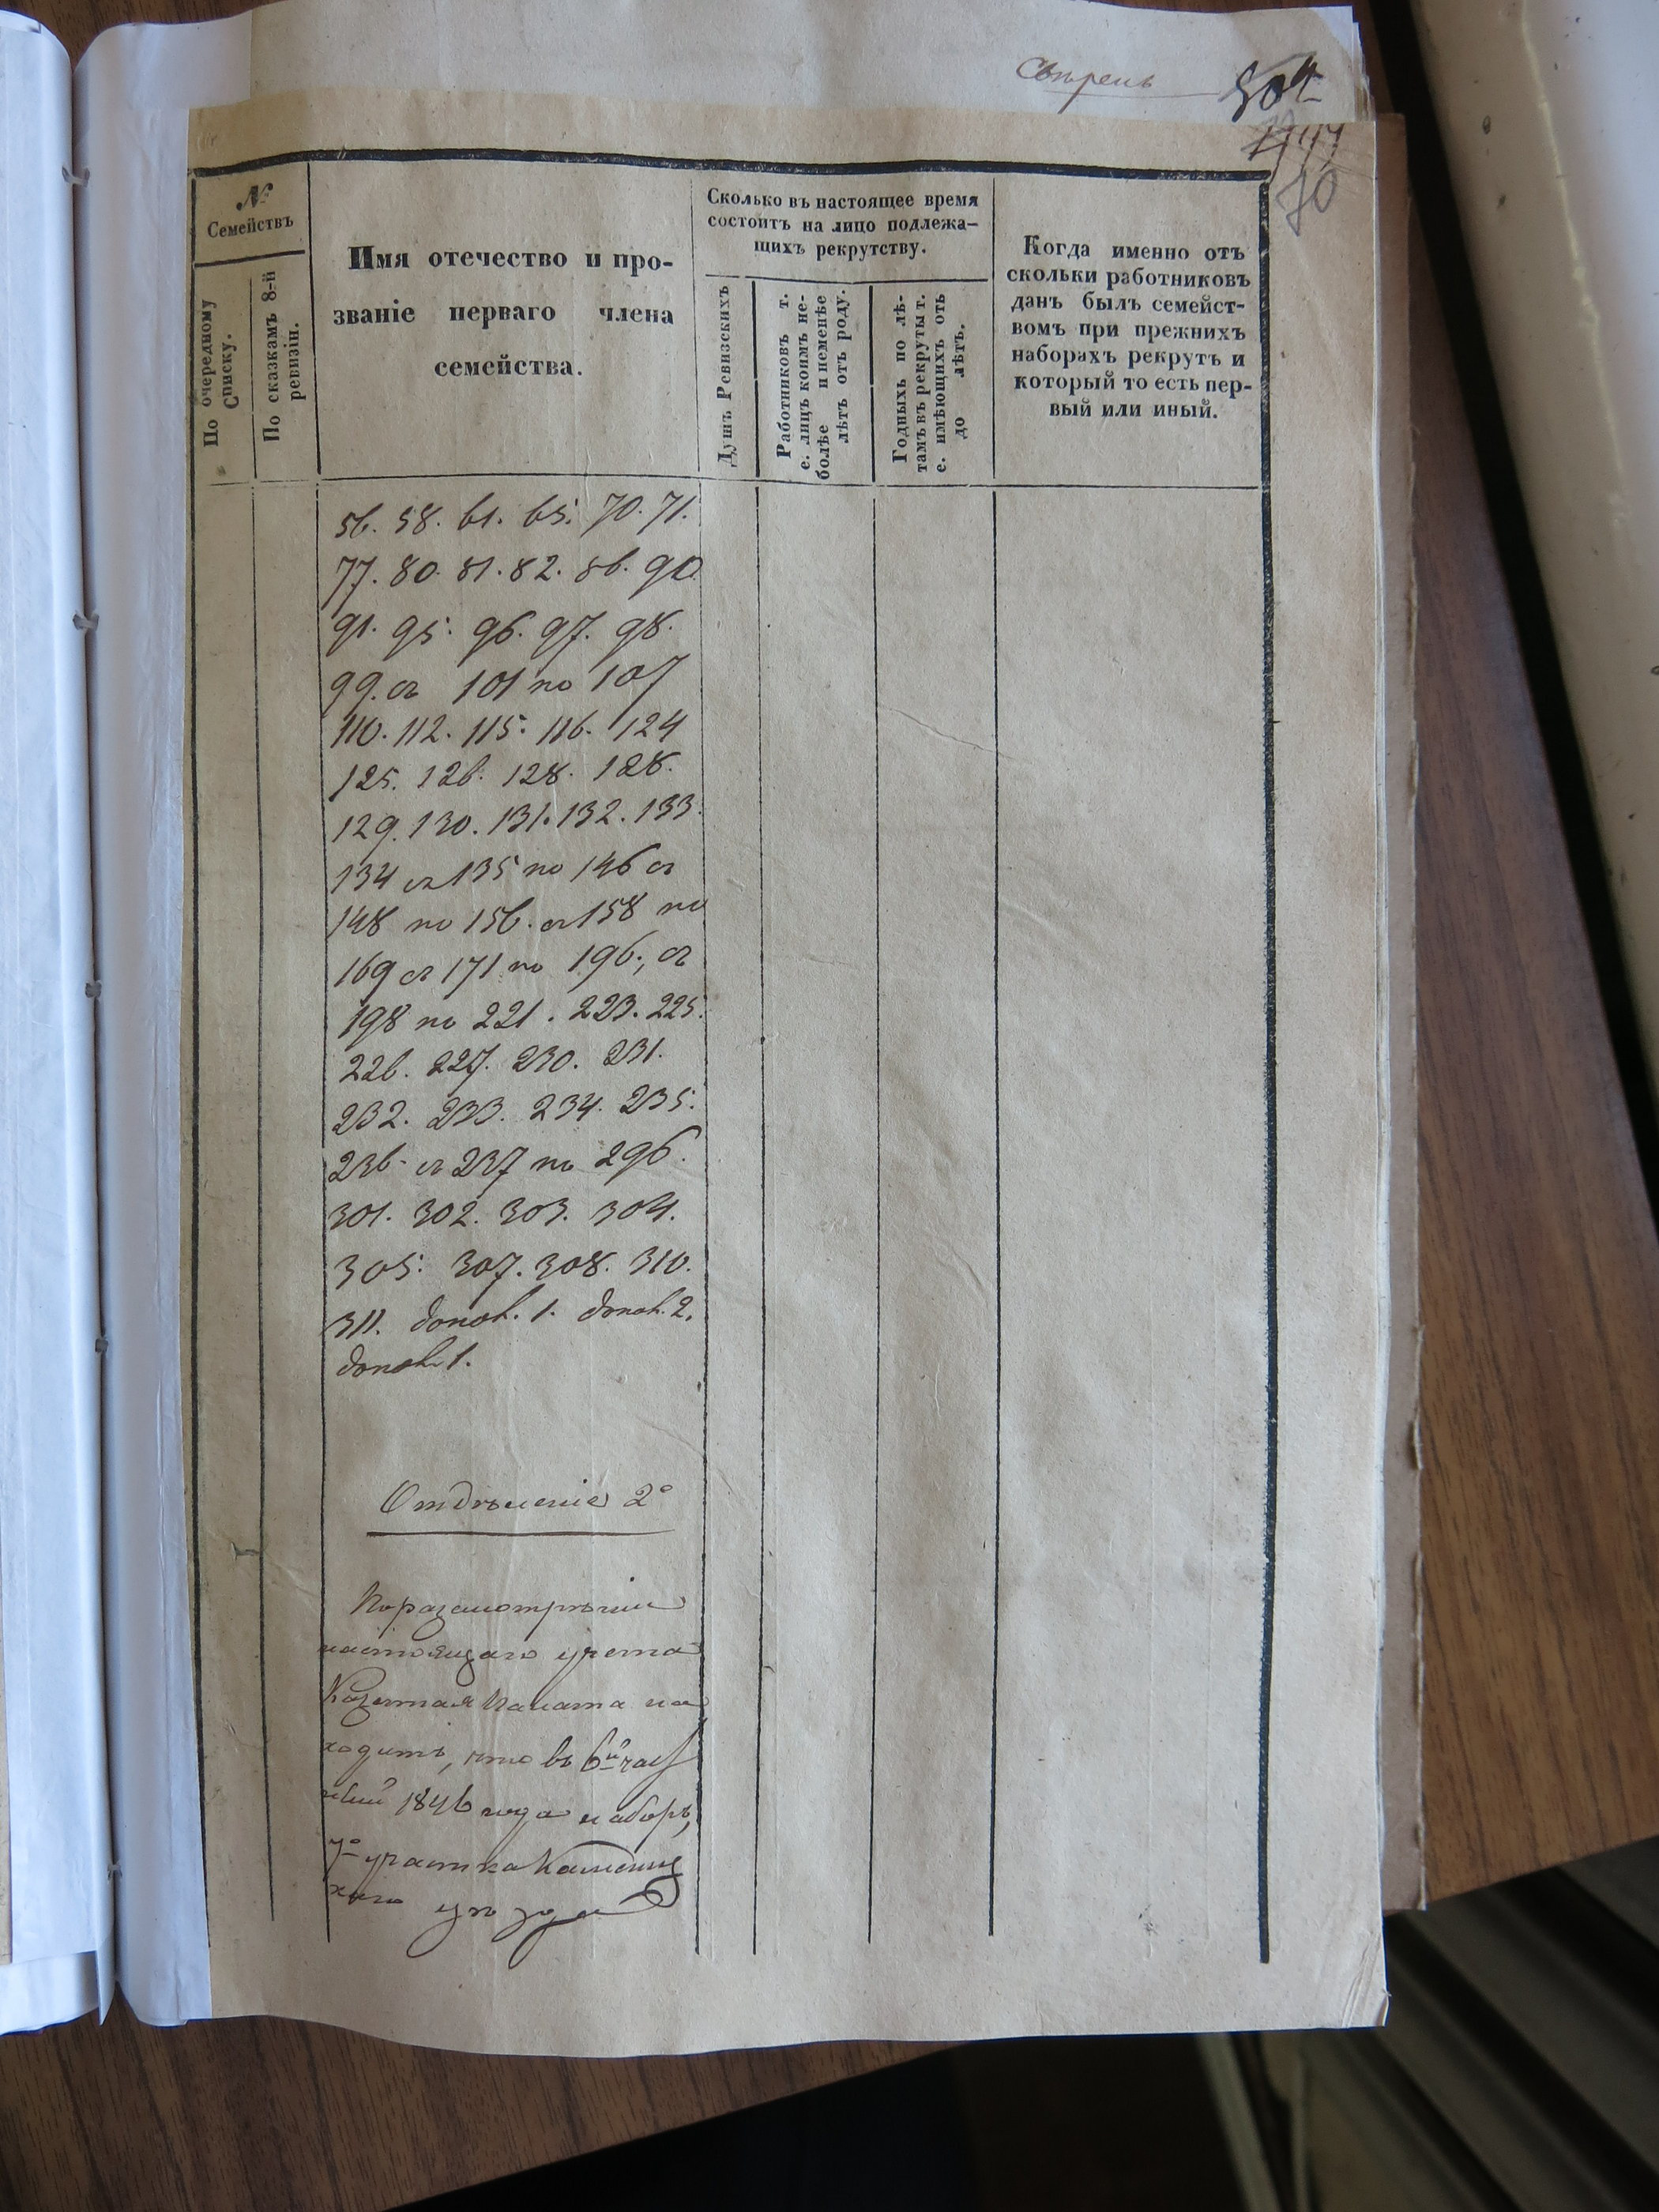 504
70
№
Семействъ
По очередному
Списку.
По сказкамъ 8-й
ревизіи.
Имя отечество и про-
званіе перваго члена
семейства.
Сколько въ настоящее время
состоитъ на лицо подлежа-
щихъ рекрутству.
Душъ Ревизскихъ
Работниковъ т.
е. лицъ коимъ не-
болѣе и неменѣе
лѣтъ отъ роду.
Годныхъ по лѣ-
тамъ въ рекруты т.
е. имѣющихъ отъ
до лѣтъ.
Когда именно отъ
скольки работниковъ
данъ былъ семейст-
вомъ при прежнихъ
наборахъ рекрутъ и
который то есть пер-
вый или иный.
56. 58. 61. 65. 70. 71.
77. 80. 81. 82. 86. 90.
91. 95. 96. 97. 98.
99. съ 101 по 107
110. 112. 115. 116. 124
125. 126. 128. 128.
129. 130. 131. 132. 133.
134 съ 135 по 146 съ
148 по 156. съ 158 по
169 съ 171 по 196., съ
198 по 221. 223. 225.
226. 227. 230. 231.
232. 233. 234. 235.
236. съ 237 по 296.
301. 302. 303. 304.
305. 307. 308. 310.
311. допол. 1. допол. 2.
допол. 1.
Отдѣленіе 2е
По разсмотрѣніи
настоящаго учета
Казенная Палата на
ходитъ, что въ 6й час
тный 1846 года наборъ,
7го участка Каменец
каго уѣзда